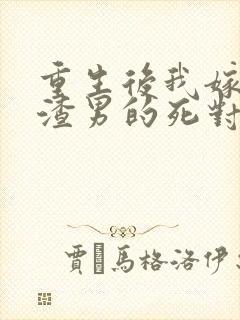 重生後我嫁
渣男的死對
賈馬格洛伊